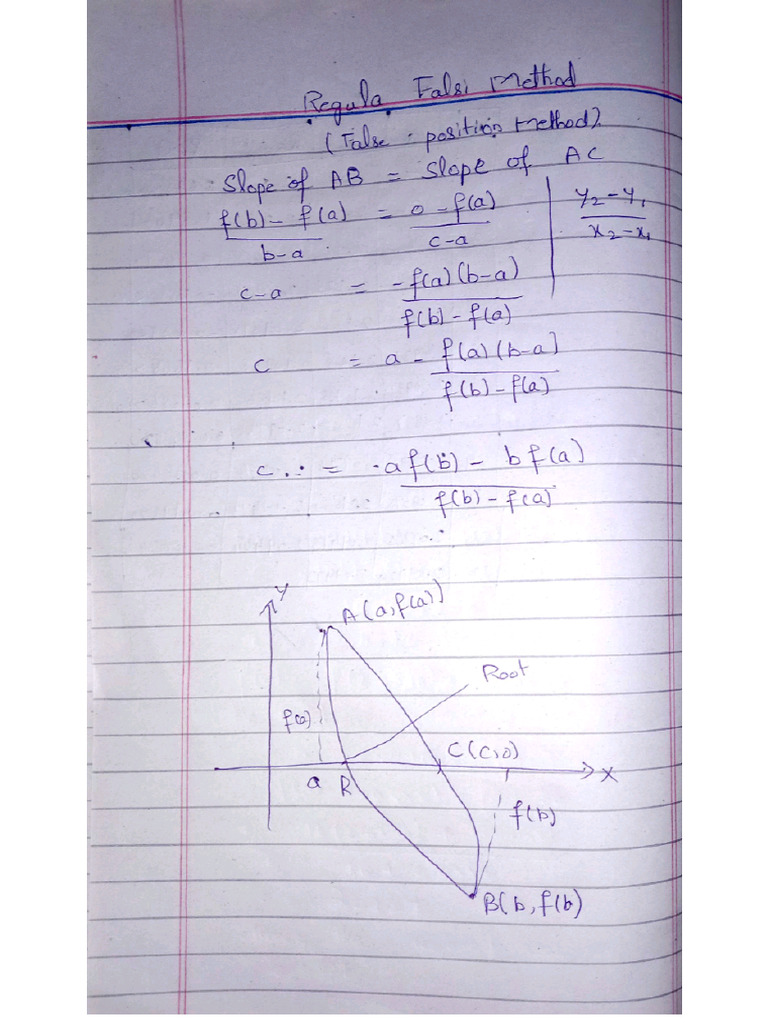 Regula Falsi Method
(False - position Method).
Slope of AB = Slope of AC
f(b) - f(a) / b-a = 0 - f(a) / c-a | y2 - y1 / x2 - x1
c-a = -f(a)(b-a) / f(b) - f(a)
c = a - f(a)(b-a] / f(b) - f(a)
c = a f(b) - b f(a) / f(b) - f(a)
Y
A(a, f(a))
Root
f(a)
C(c,0)
a R X
f(b)
B(b, f(b)